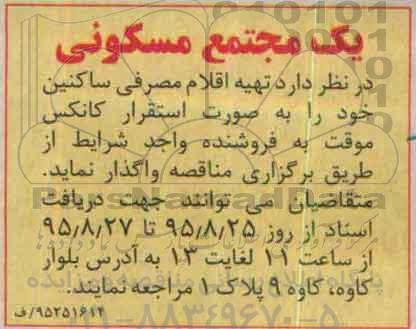 یک مجتمع مسکونی
در نظر دارد تهیه اقلام مصرفی ساکنین
خود را به صورت استقرار کانکس
موقت به فروشنده واجد شرایط از
طریق برگزاری مناقصه واگذار نماید.
متقاضیان می توانند جهت دریافت
اسناد از روز ۹۵٫۸٫۲۵ تا ۹۵٫۸٫۲۷
از ساعت ۱۱ لغایت ۱۳ به آدرس بلوار
کاوه، کاوه ۹ پلاک ۱ مراجعه نمایند.
۹۵۲۵۱۶۱۴/ف
۰۲۱-۸۸۳۴۹۶۷۰-۵